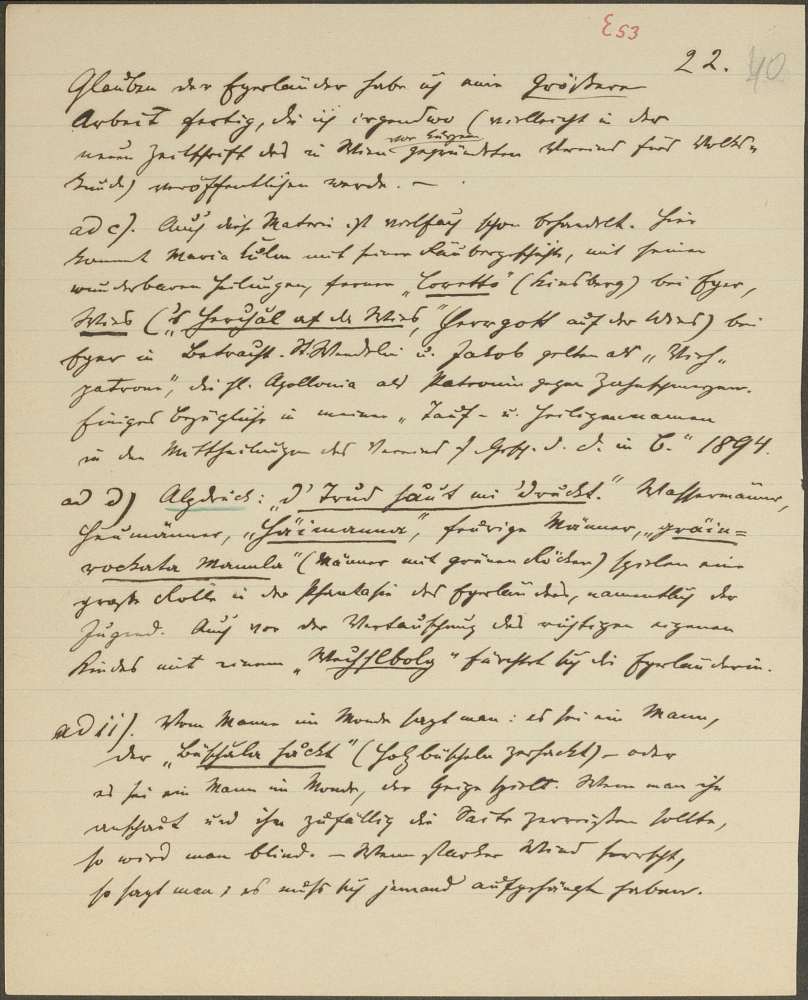 E 53
22. 40
Glauben der Egerländer habe ich eine größere
Arbeit fertig, die ich irgendwo (vielleicht in der
vor kurzem
neuen Zeitschrift des in Wien gegründeten Vereins fürs Volks-
kunde) veröffentlichen werde. —
ad c). Auch diese Materie ist vielfach schon behandelt. Hier
kommt Maria Kulm mit seiner Räubergeschichte, mit seinen
wunderbaren Heilungen, ferner „Loretto" (Kinsberg) bei Eger,
Wies („'s Herchal af da Wies," Herrgott auf der Wies) bei
Eger in Betracht. St. Wendelin u. Jakob gelten als „Vieh-
patrone", die hl. Apollonia als Patronin gegen Zahnschmerzen.
Einiges bezügliche in meinen „Tauf- u. Heiligennamen
in den Mittheilungen des Vereins f. Gesch. d. D. in B." 1894.
ad d) Alpdrück: „d' Trud håut mi 'druckt." Wassermänner,
Heumänner, „Häimanna", feurige Männer, „gräin=
rockata Mannla" (Männer mit grünen Röcken) spielen eine
große Rolle in der Phantasie des Egerländers, namentlich der
Jugend. Auch vor der Vertauschung des richtigen eigenen
Kindes mit einem „Wechslbolg" fürchtet sich die Egerländerin.
ad ii). Vom Manne im Monde sagt man: es sei ein Mann,
der „Büschala håckt" (Holzbüscheln zerhackt) – oder
es sei ein Mann im Monde, der Geige spielt. Wenn man ihn
anschaut und ihm zufällig die Saite zerreißen sollte,
so wird man blind. – Wenn starker Wind herrscht,
so sagt man, es muß sich jemand aufgehängt haben.